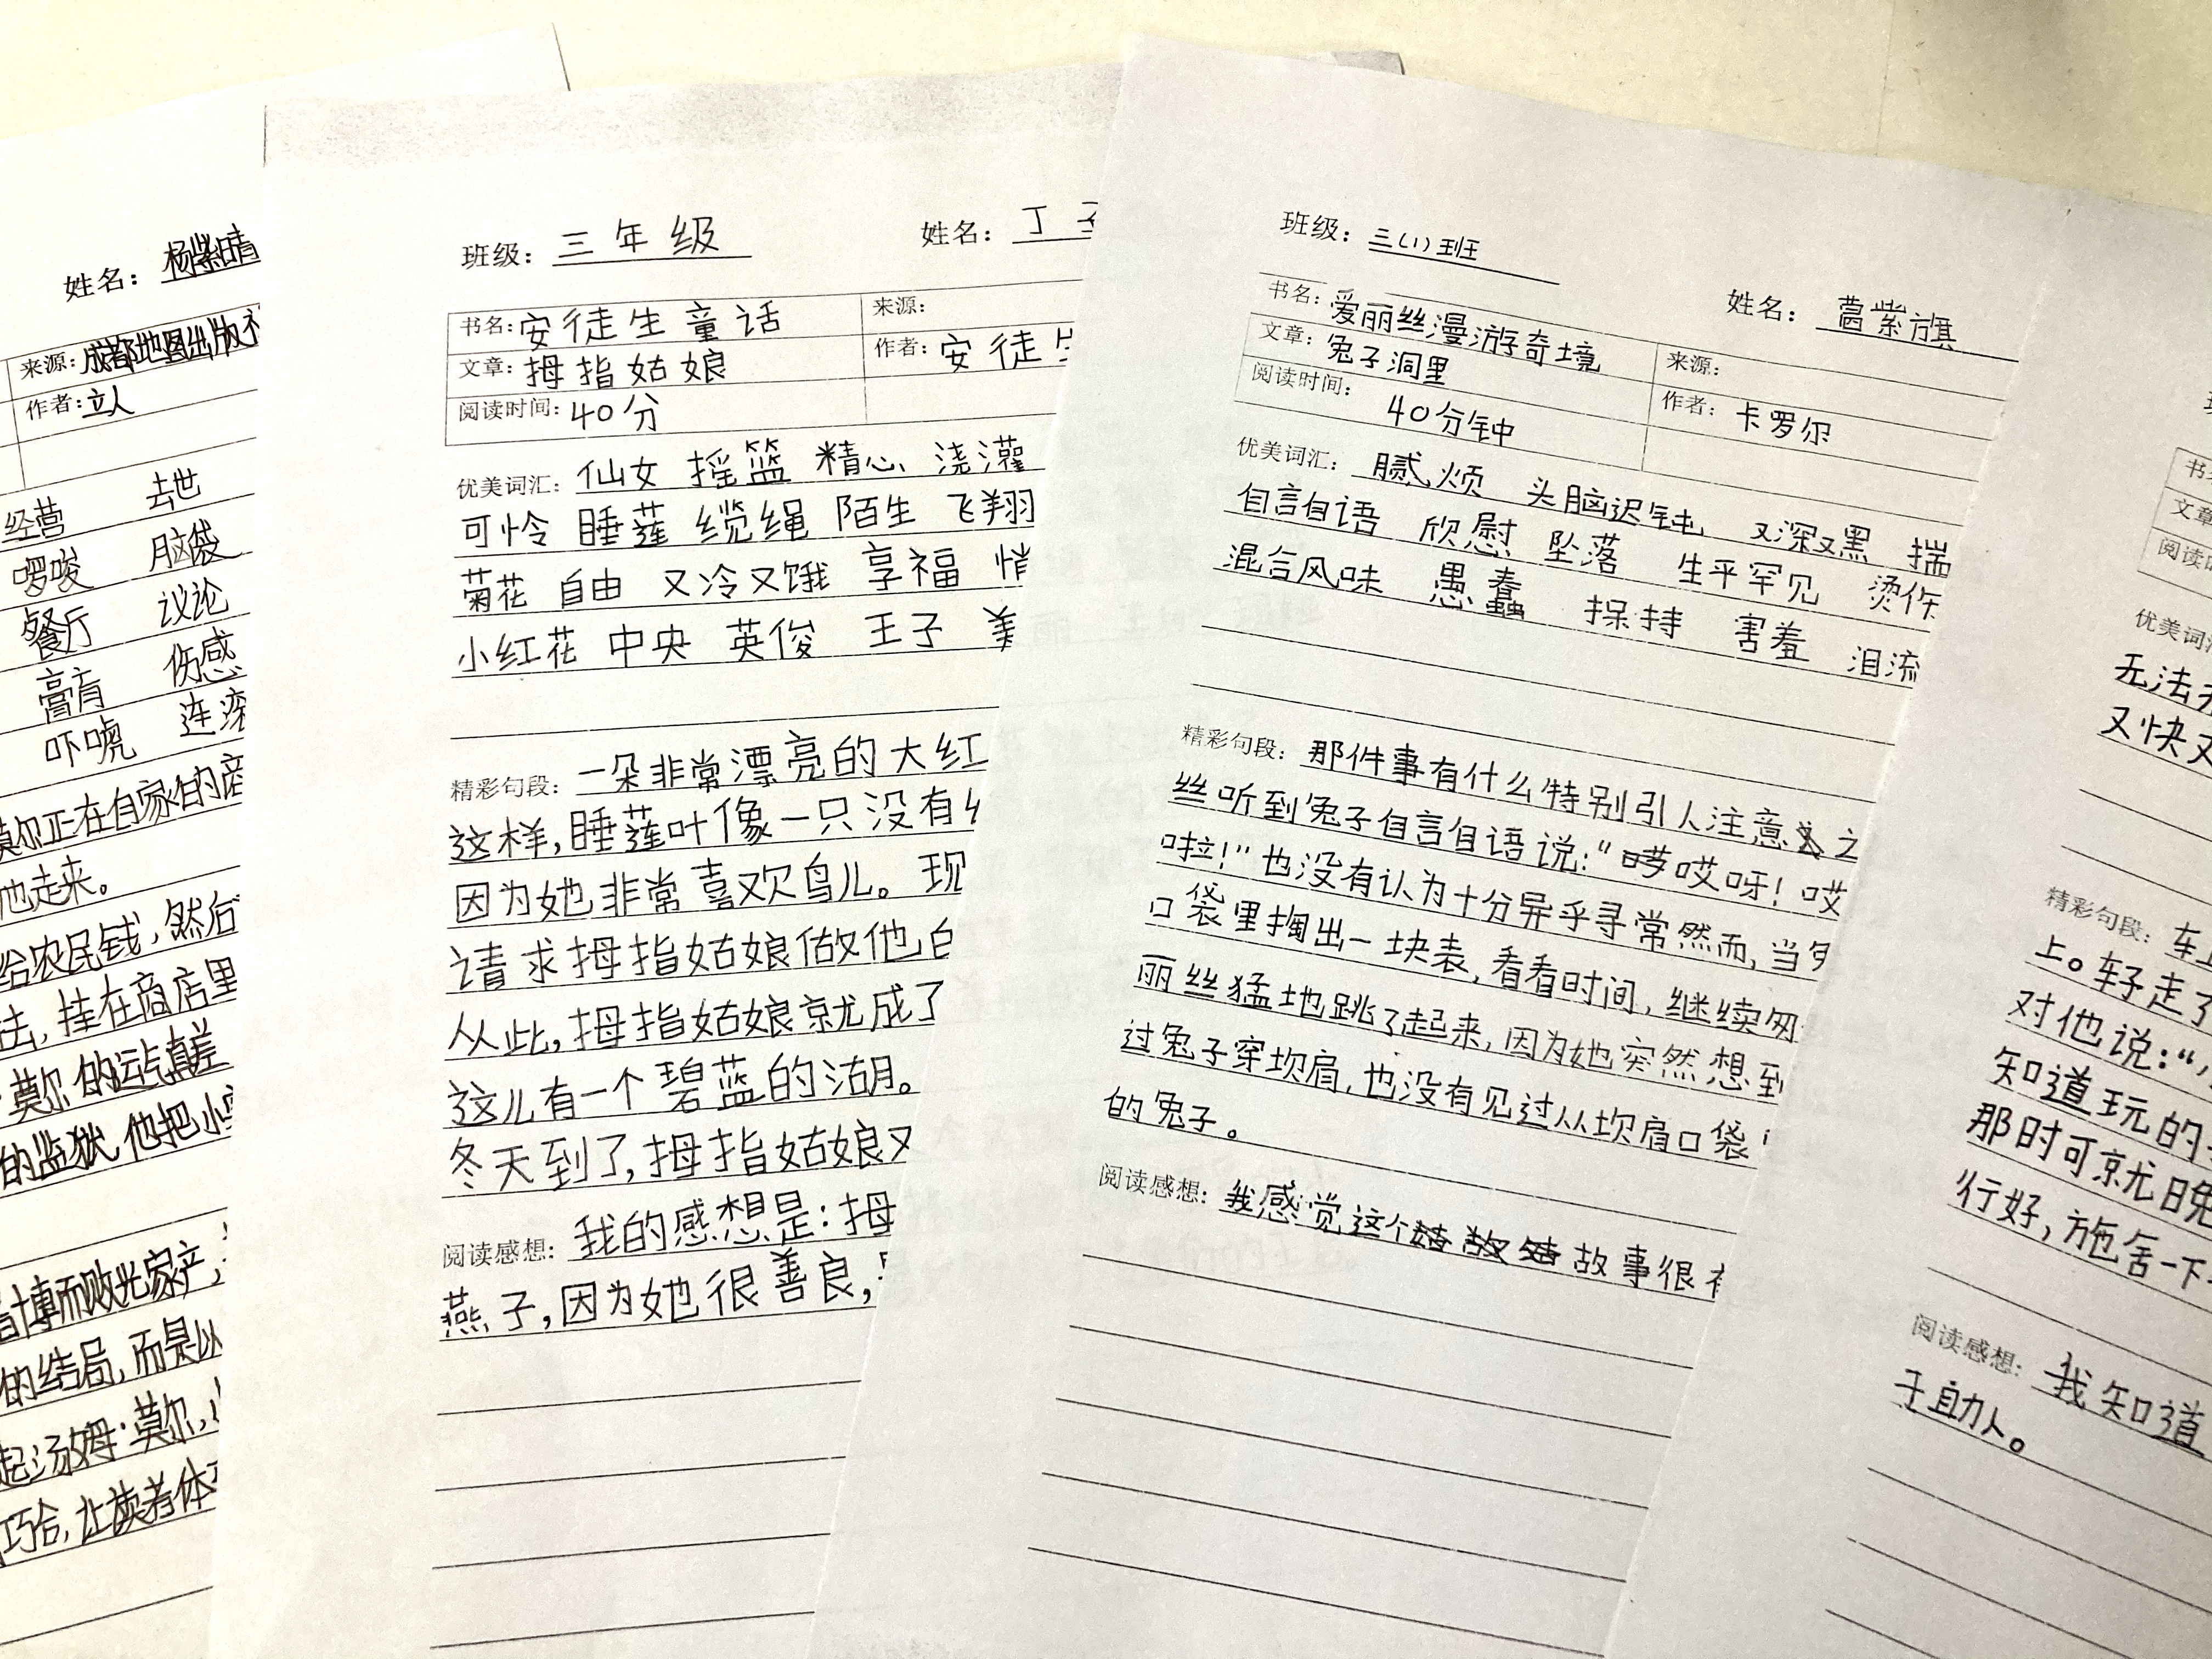 姓名：杨紫晴
来源：成都地图出版社
作者：立人
经营 去世
啰唆 脑袋
餐厅 议论
膏肓 伤感
吓唬 连滚
莫尔正在自家的商
他走来。
给农民钱，然后
法，挂在商店里
莫尔的运气真差
的监狱，他把小
博而败光家产，
的结局，而是以
起汤姆·莫尔，
巧合，让读者体
班级：三年级 姓名：丁
书名：安徒生童话 来源：
文章：拇指姑娘 作者：安徒生
阅读时间：40分
优美词汇：仙女 摇篮 精心 浇灌
可怜 睡莲 缆绳 陌生 飞翔
菊花 自由 又冷又饿 享福 悄
小红花 中央 英俊 王子 美
精彩句段：一朵非常漂亮的大红
这样，睡莲叶像一只没有
因为她非常喜欢鸟儿。现
请求拇指姑娘做他
从此，拇指姑娘就成了
这儿有一个碧蓝的湖。
冬天到了，拇指姑娘又
阅读感想：我的感想是：拇
燕子，因为她很善良，
班级：三(1)班 姓名：紫旗
书名：爱丽丝漫游奇境 来源：
文章：兔子洞里 作者：卡罗尔
阅读时间：40分钟
优美词汇：腻烦 头脑迟钝 又深又黑 揣
自言自语 欣慰 坠落 生平罕见 烫伤
混合风味 愚蠢 保持 害羞 泪流
精彩句段：那件事有什么特别引人注意之
丝听到兔子自言自语说：“哎哎呀！哎
啦！”也没有认为十分异乎寻常然而，当
口袋里掏出一块表，看看时间，继续匆
丽丝猛地跳了起来，因为她突然想到
过兔子穿坎肩，也没有见过从坎肩口袋
的兔子。
阅读感想：我感觉这个故事很有
书
文章
阅读时
优美词汇
无法
又快又
精彩句段：车
上。车子走了
对他说：“
知道玩的
那时可就晚
行好，施舍一下
阅读感想：我知道
于助人。